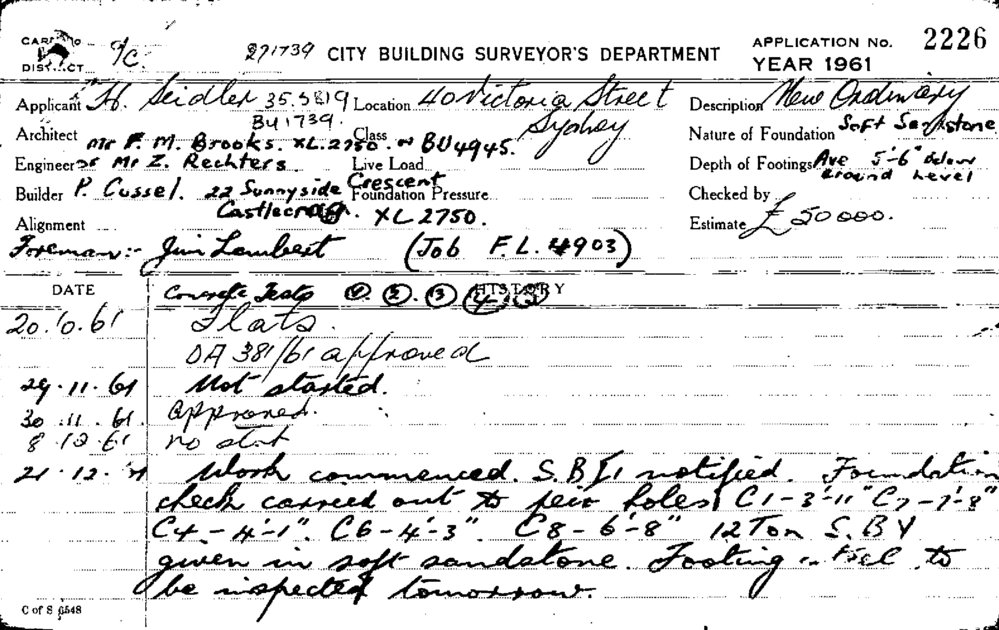 CARD TO
DISTRICT
271739 CITY BUILDING SURVEYOR'S DEPARTMENT
APPLICATION No. 2226
YEAR 1961
Applicant H. Seidler 35.5819 Location 40 Victoria Street Description New Ordinary
BU1739. Sydney
Architect Mr F. M. Brooks. XL.2750. Class BU4945. Nature of Foundation Soft Sandstone
Engineer Mr Z. Rechters Live Load Depth of Footings Ave 5'-6" below ground level
Builder P. Cussel. 22 Sunnyside Crescent Foundation Pressure Checked by
Castlecrag. XL2750. Estimate £50000.
Alignment
Foreman:- Jim Lambert (Job F.L. 4903)
DATE HISTORY
Concrete Tests ① ② ③ ④
20.10.61 Flats.
DA 381/61 approved
29.11.61 Not started.
30.11.61. Approved.
8.12.61 no start
21.12. Work commenced. S.B.I. notified. Foundation
check carried out to peir holes C1-3'-11" C7-7'-8"
C4-4'-1". C6-4'-3". C8-6'-8" 12 Ton S.B.V
given in soft sandstone. Footing steel to
be inspected tomorrow.
C of S 6548